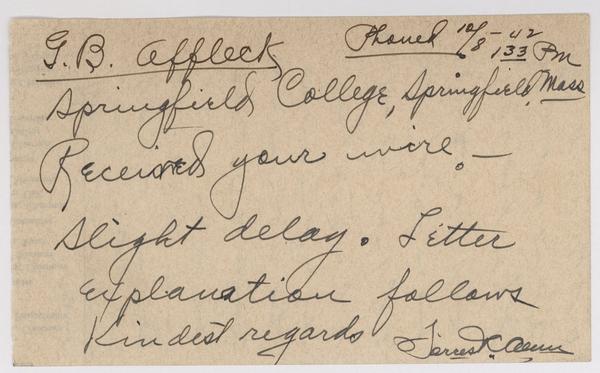 G. B. Affleck Phoned 10/8 - 42
133 Pm
Springfield College, Springfield, Mass
Received your wire. —
Slight delay. Letter
explanation follows
Kindest regards Forrest C.